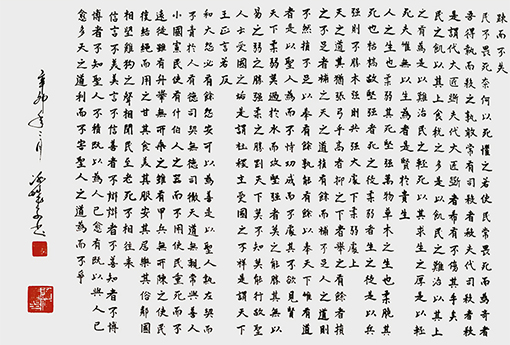 疎而不失
民不畏死奈何以死懼之若使民常畏死而為奇者
吾得執而殺之孰敢常有司殺者殺夫代司殺者殺
是謂代大匠斲夫代大匠斲者希有不傷其手矣
民之飢以其上食稅之多是以飢民之難治以其上
之有為是以難治民之輕死以其求生之厚是以輕
死夫唯無以生為者是賢於貴生
人之生也柔弱其死堅強萬物草木之生也柔脆其
死也枯槁故堅強者死之徒柔弱者生之徒是以兵
強則不勝木強則共強大處下柔弱處上
天之道其猶張弓乎高者抑之下者舉之有餘者損
之不足者補之天之道損有餘而補不足人之道則
不然損不足以奉有餘孰能有餘以奉天下唯有道
者是以聖人為而不恃功成而不處其不欲見賢
天下柔弱莫過於水而攻堅強者莫之能勝其無以
易之弱之勝強柔之勝剛天下莫不知莫能行故聖
人云受國之垢是謂社稷主受國之不祥是謂天下
王正言若反
和大怨必有餘怨安可以為善是以聖人執左契而
不責於人有德司契無德司徹天道無親常與善人
小國寡民使有什伯人之器而不用使民重死而不
遠徙雖有舟轝無所乘之雖有甲兵無所陳之使民
復結繩而用之甘其食美其服安其居樂其俗鄰國
相望雞狗之聲相聞民至老死不相往來
信言不美美言不信善者不辯辯者不善知者不博
博者不知聖人不積既以為人己愈有既以與人己
愈多天之道利而不害聖人之道為而不爭
辛卯年二月